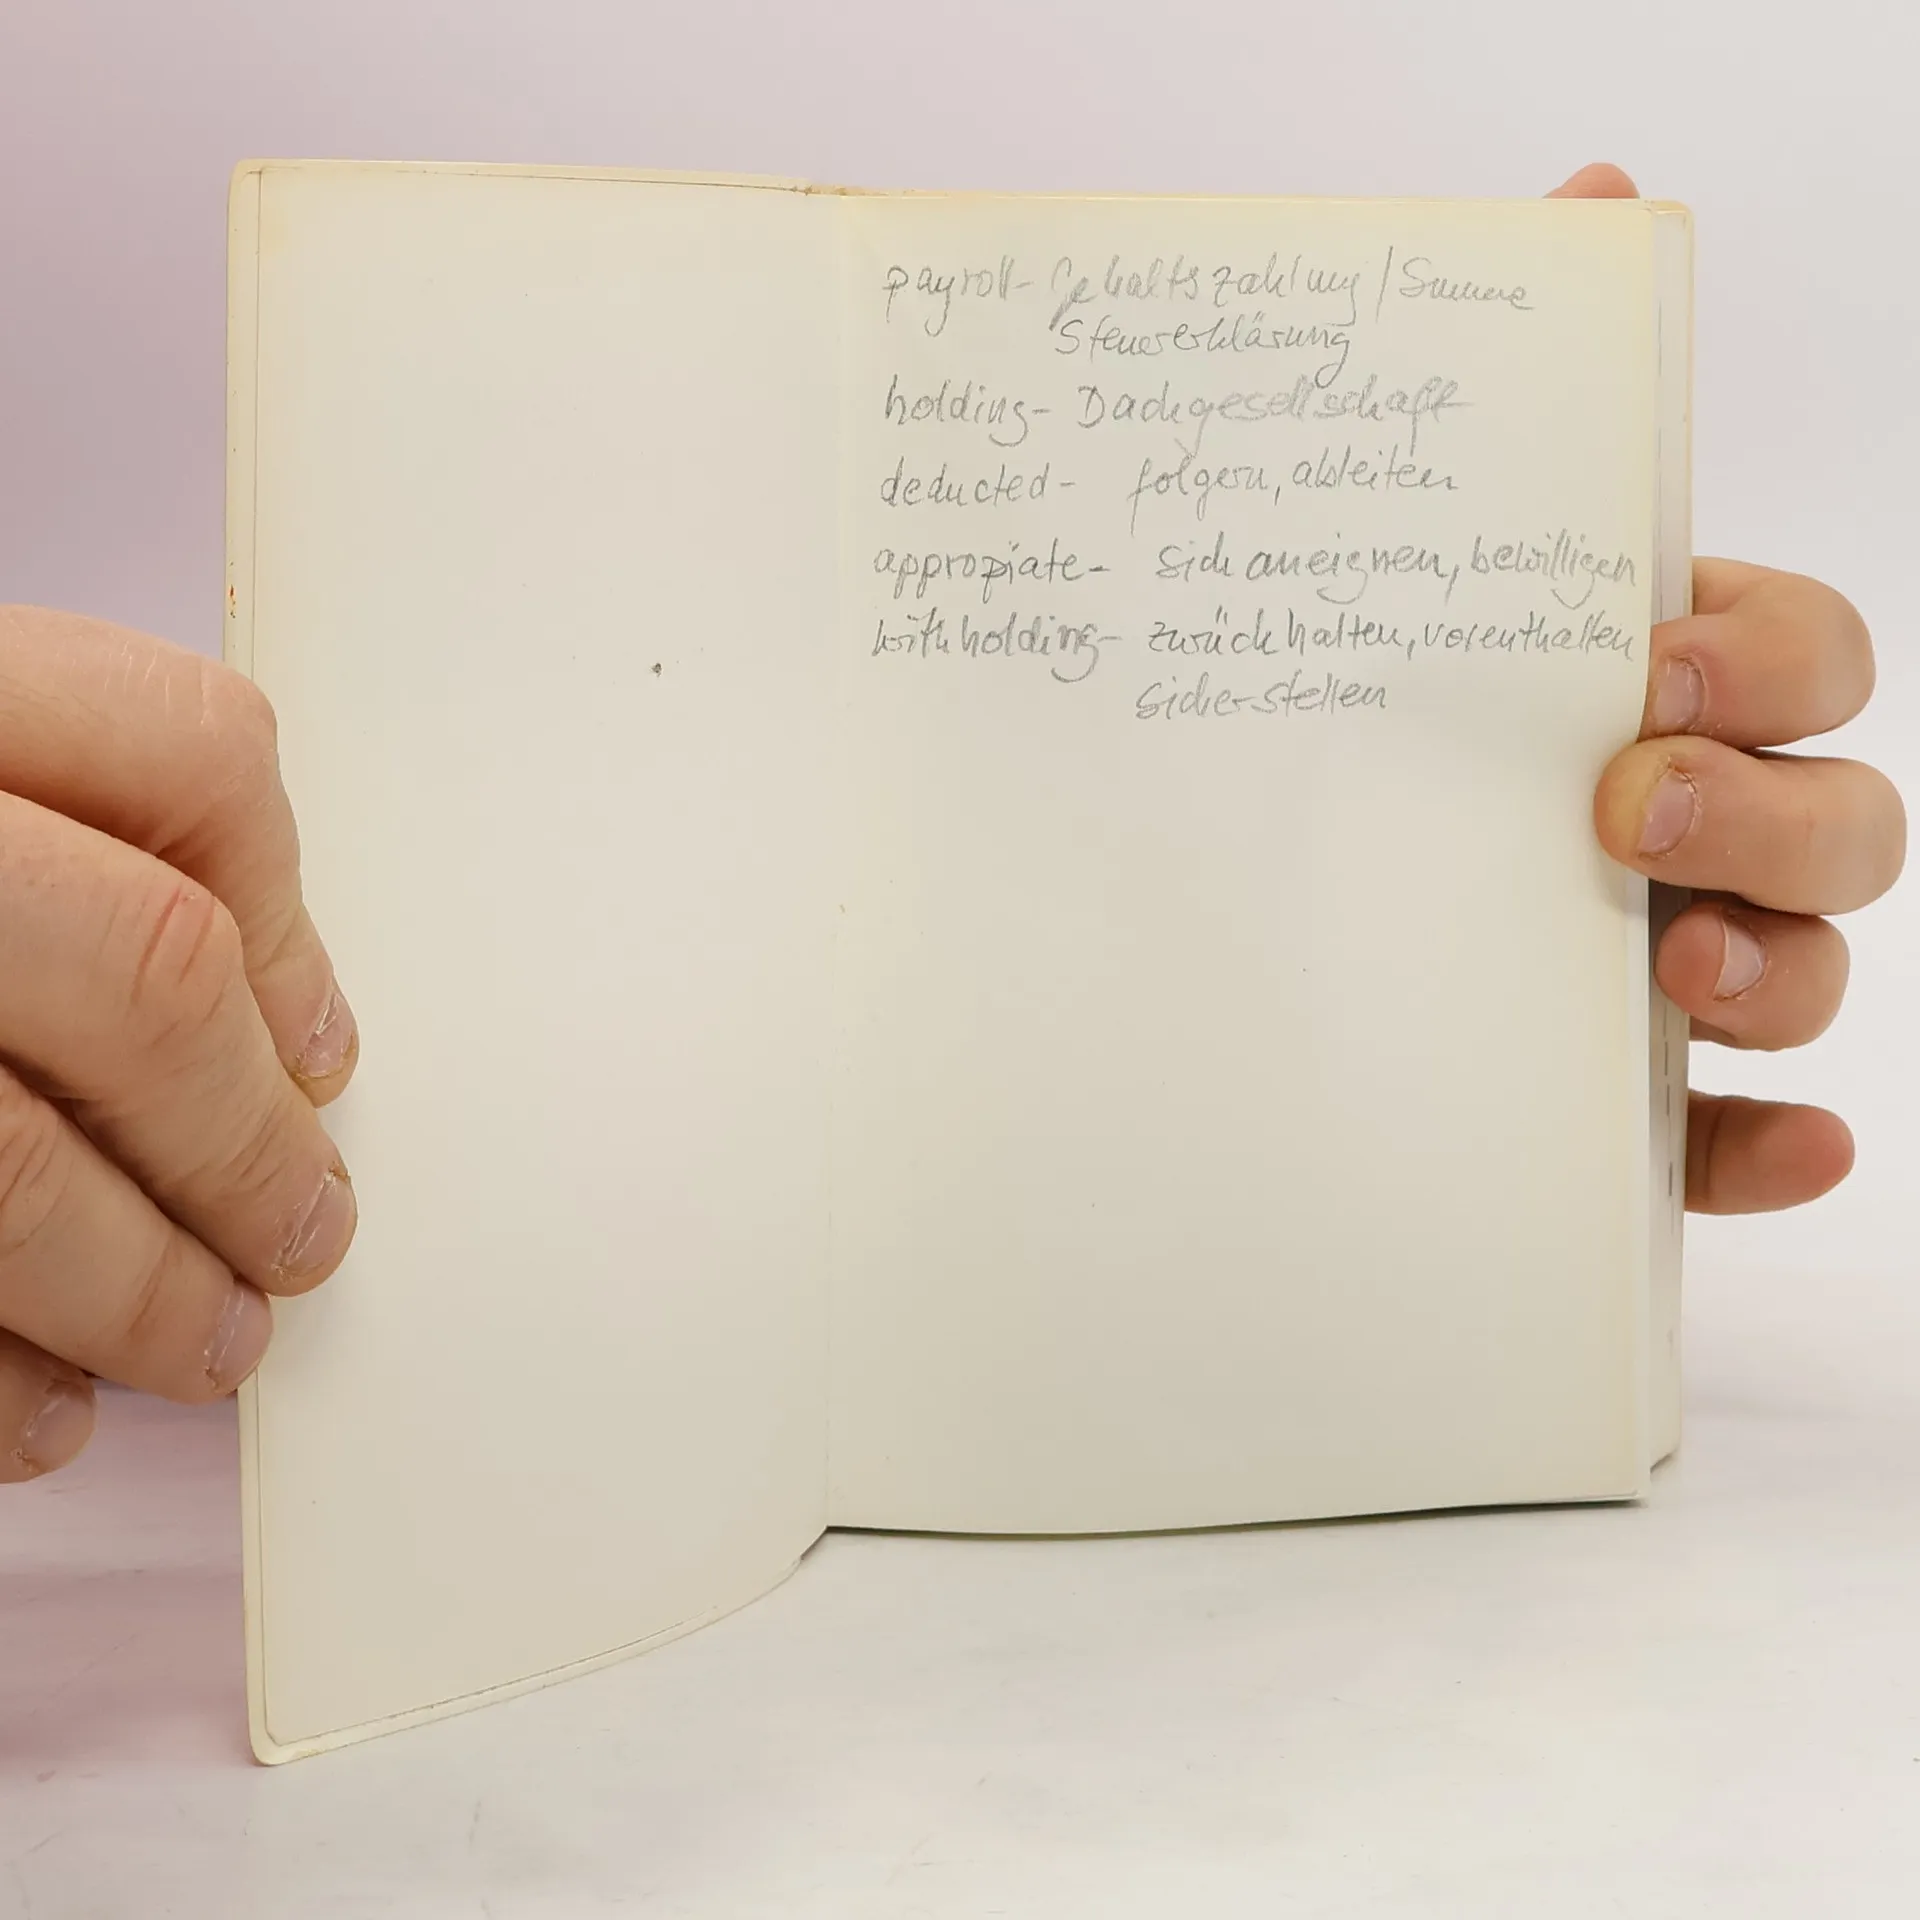 payroll - Gehaltszahlung / Summe
Steuererklärung
holding - Dachgesellschaft
deducted - folgern, ableiten
appropiate - sich aneignen, bewilligen
withholding - zurückhalten, vorenthalten
sicherstellen